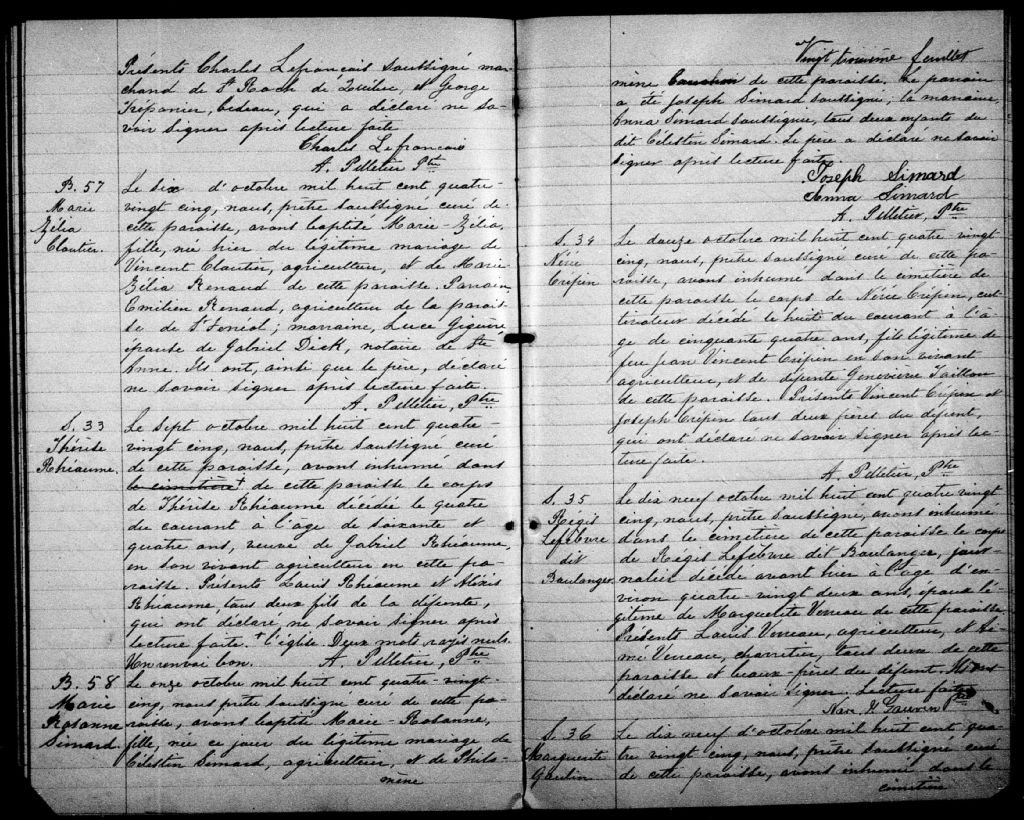 Présents Charles Lefrancois soussigné mar-
chand de St Roch de Québec, et George
Trépanier, bedeau, qui a déclaré ne sa-
voir signer après lecture faite
Charles Lefrancois
A. Pelletier Ptre
B. 57
Marie
Zélia
Cloutier.
Le six d'octobre mil huit cent quatre-
vingt cinq, nous, prêtre soussigné curé de
cette paroisse, avons baptisé Marie-Zélia,
fille, née hier du légitime mariage de
Vincent Cloutier, agriculteur, et de Marie
Zélia Renaud de cette paroisse. Parrain,
Emilien Renaud, agriculteur de la parois-
se de St Ferréol; marraine, Luce Giguère
épouse de Gabriel Dick, notaire de Ste
Anne. Ils ont, ainsi que le père, déclaré
ne savoir signer après lecture faite.
A. Pelletier, Ptre
S. 33
Thérèse
Rhéaume.
Le sept octobre mil huit cent quatre-
vingt cinq, nous, prêtre soussigné curé
de cette paroisse, avons inhumé dans
le cimetière + de cette paroisse le corps
de Thérèse Rhéaume décédée le quatre
du courant à l'age de soixante et
quatre ans, veuve de Gabriel Rhéaume,
en son vivant agriculteur en cette pa-
roisse. Présents Louis Rhéaume et Alexis
Rhéaume, tous deux fils de la défunte,
qui ont déclaré ne savoir signer après
lecture faite. + l'église Deux mots rayés nuls
Un renvoi bon. A. Pelletier, Ptre
B. 58
Marie
Rosanne
Simard.
Le onze octobre mil huit cent quatre-vingt-
cinq, nous prêtre soussigné curé de cette pa-
roisse, avons baptisé Marie-Rosanne,
fille, née ce jour du légitime mariage de
Célestin Simard, agriculteur, et de Philo-
mène
Vingt troisième feuillet
mène Cauchon de cette paroisse. Le parrain
a été Joseph Simard soussigné; la marraine,
Anna Simard soussignée, tous deux enfants du
dit Célestin Simard. Le père a déclaré ne savoir
signer après lecture faite.
Joseph Simard
Anna Simard
A. Pelletier, Ptre
S. 34
Nérée
Crépin
Le douze octobre mil huit cent quatre-vingt
cinq, nous, prêtre soussigné curé de cette pa-
roisse, avons inhumé dans le cimetière de
cette paroisse le corps de Nérée Crépin, cul-
tivateur décédé le huit du courant à l'â-
ge de cinquante quatre ans, fils légitime de
feu Jean Vincent Crépin en son vivant
agriculteur, et de défunte Geneviève Taillon
de cette paroisse. Présents Vincent Crépin et
Joseph Crépin tous deux frères du défunt,
qui ont déclaré ne savoir signer après lec-
ture faite.
A. Pelletier, Ptre
S. 35
Régis
Lefebvre
dit
Boulanger.
Le dix neuf octobre mil huit cent quatre vingt
cinq, nous, prêtre soussigné, avons inhumé
dans le cimetière de cette paroisse le corps
de Régis Lefebvre dit Boulanger, jour-
nalier décédé avant hier à l'age d'en-
viron quatre-vingt deux ans, époux lé-
gitime de Marguerite Verreau de cette paroisse
Présents Louis Verreau, agriculteur, et Ai-
mé Verreau, charretier, tous deux de cette
paroisse et beaux frères du défunt. Ils ont
déclaré ne savoir signer. Lecture faite
Gauvin Ptre
S. 36
Marguerite
Gaulin
Le dix neuf d'octobre mil huit cent, qua-
tre vingt cinq, nous, prêtre soussigné curé
de cette paroisse, avons inhumé dans le
cimetière